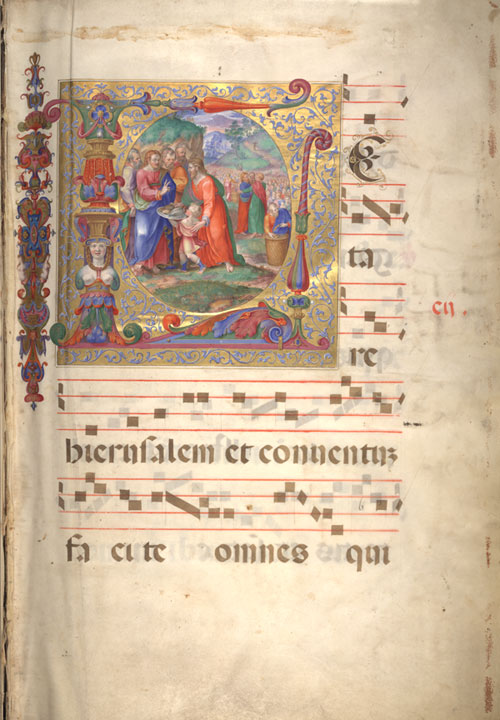 LE
ta
cii.
re
hierusalem et conuentuz
fa cite omnes qui